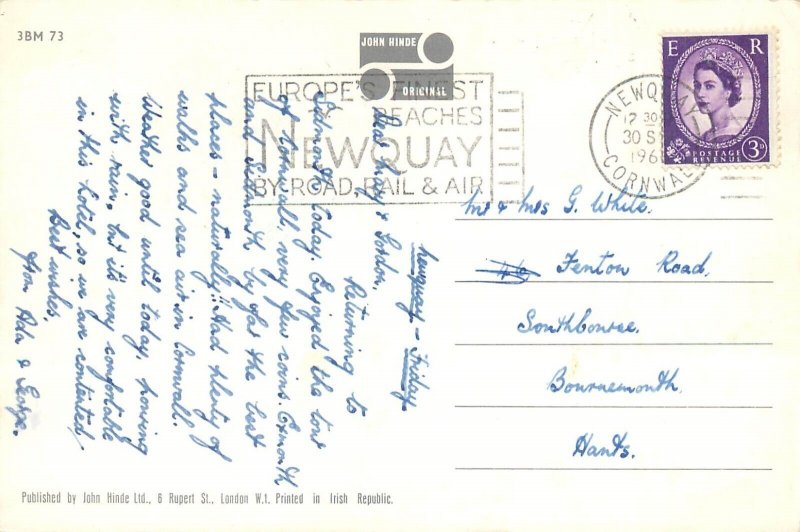 3BM 73
JOHN HINDE
ORIGINAL
EUROPE'S FINEST
BEACHES
NEWQUAY
BY ROAD, RAIL & AIR
NEWQUAY
12 30
30 S
196
CORNWALL
E R
POSTAGE
REVENUE
3D
Newquay - Friday.
Dear Mary & Gordon,
Returning to
Sidmouth today. Enjoyed the tour
of Cornwall, very few coins. Exmouth
and Sidmouth by far the best
places - naturally!! Had plenty of
walks and sea air in Cornwall.
Weather good until today, pouring
with rain, but it's very comfortable
in this hotel, so we are contented!
Best wishes,
from Ada & George.
Mr & Mrs G. White.
Fenton Road,
Southbourne.
Bournemouth,
Hants.
Published by John Hinde Ltd., 6 Rupert St., London W.1. Printed in Irish Republic.